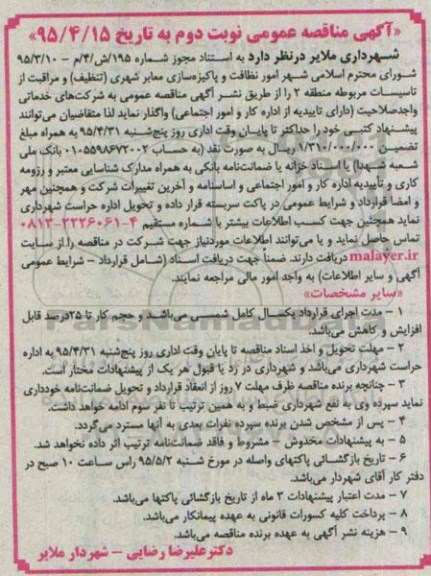 «آگهی مناقصه عمومی نوبت دوم به تاریخ ۹۵/۴/۱۵»
شهرداری ملایر درنظر دارد به استناد مجوز شماره ۱۹۵/ش/۴/م – ۹۵/۳/۱۰
شورای محترم اسلامی شهر امور نظافت و پاکیزه‌سازی معابر شهری (تنظیف) و مراقبت از
تاسیسات مربوطه منطقه ۲ را از طریق نشر آگهی مناقصه عمومی به شرکت‌های خدماتی
واجدصلاحیت (دارای تاییدیه از اداره کار و امور اجتماعی) واگذار نماید لذا متقاضیان می‌توانند
پیشنهاد کتبی خود را حداکثر تا پایان وقت اداری روز پنج‌شنبه ۹۵/۴/۳۱ به همراه مبلغ
تضمین ۱/۳۱۰/۰۰۰/۰۰۰ ریال به صورت نقد (به حساب ۰۱۰۵۵۹۸۶۷۳۰۰۲ بانک ملی
شعبه شهدا) یا اسناد خزانه یا ضمانت‌نامه بانکی به همراه مدارک شناسایی معتبر و رزومه
کاری و تاییدیه اداره کار و امور اجتماعی و اساسنامه و آخرین تغییرات شرکت و همچنین مهر
و امضا قرارداد و شرایط عمومی در پاکت سربسته قرار داده و تحویل اداره حراست شهرداری
نماید همچنین جهت کسب اطلاعات بیشتر با شماره مستقیم ۴-۰۸۱۳-۲۲۲۶۰۶۱
تماس حاصل نماید و یا می‌توانند اطلاعات موردنیاز جهت شرکت در مناقصه را از سایت
malayer.ir دریافت دارند. ضمنا جهت دریافت اسناد (شامل قرارداد – شرایط عمومی
آگهی و سایر اطلاعات) به واحد امور مالی مراجعه نمایند.
«سایر مشخصات»
۱ – مدت اجرای قرارداد یکسال کامل شمسی می‌باشد و حجم کار تا ۲۵درصد قابل
افزایش و کاهش می‌باشد.
۲ – مهلت تحویل و اخذ اسناد مناقصه تا پایان وقت اداری روز پنج‌شنبه ۹۵/۴/۳۱ به اداره
حراست شهرداری می‌باشد و شهرداری در رد یا قبول هر یک از پیشنهادات مختار است.
۳ – چنانچه برنده مناقصه ظرف مهلت ۷ روز از انعقاد قرارداد و تحویل ضمانت‌نامه خودداری
نماید سپرده وی به نفع شهرداری ضبط و به همین ترتیب تا نفر سوم ادامه خواهد داشت.
۴ – پس از مشخص شدن برنده سپرده نفرات بعدی به آنها مسترد می‌گردد.
۵ – به پیشنهادات مخدوش – مشروط و فاقد ضمانت‌نامه ترتیب اثر داده نخواهد شد.
۶ – تاریخ بازگشائی پاکتهای واصله در مورخ شنبه ۹۵/۵/۲ راس ساعت ۱۰ صبح در
دفتر کار آقای شهردار می‌باشد.
۷ – مدت اعتبار پیشنهادات ۳ ماه از تاریخ بازگشائی پاکتها می‌باشد.
۸ – پرداخت کلیه کسورات قانونی به عهده پیمانکار می‌باشد.
۹ – هزینه نشر آگهی به عهده برنده مناقصه می‌باشد.
دکترعلیرضا رضایی – شهردار ملایر